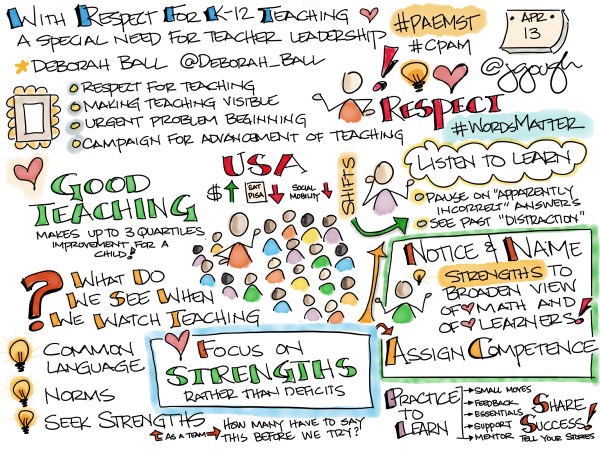 With Respect For K-12 Teaching
A Special Need for Teacher Leadership
Deborah Ball @Deborah_Ball
#PAEMST
#CPAM
APR
13
@jgough
Respect for Teaching
Making Teaching Visible
Urgent Problem Beginning
Campaign for Advancement of Teaching
! Respect
#WordsMatter
Good
Teaching
Makes up to 3 quartiles
improvement for a
child!
USA
$
SAT
PISA
Social
Mobility
Shifts
Listen to Learn
Pause on "Apparently
Incorrect" Answers
See Past "Distraction"
? What Do
We See When
We Watch Teaching
Notice & Name
Strengths to
Broaden View
of Math and
of Learners!
Assign Competence
Common
Language
Norms
Seek Strengths
As a Team
How many have to say
this before we try?
Focus on
Strengths
Rather than Deficits
Practice
to
Learn
Small Moves
Feedback
Essentials
Support
Mentor
Share
Success!
Tell Your Stories